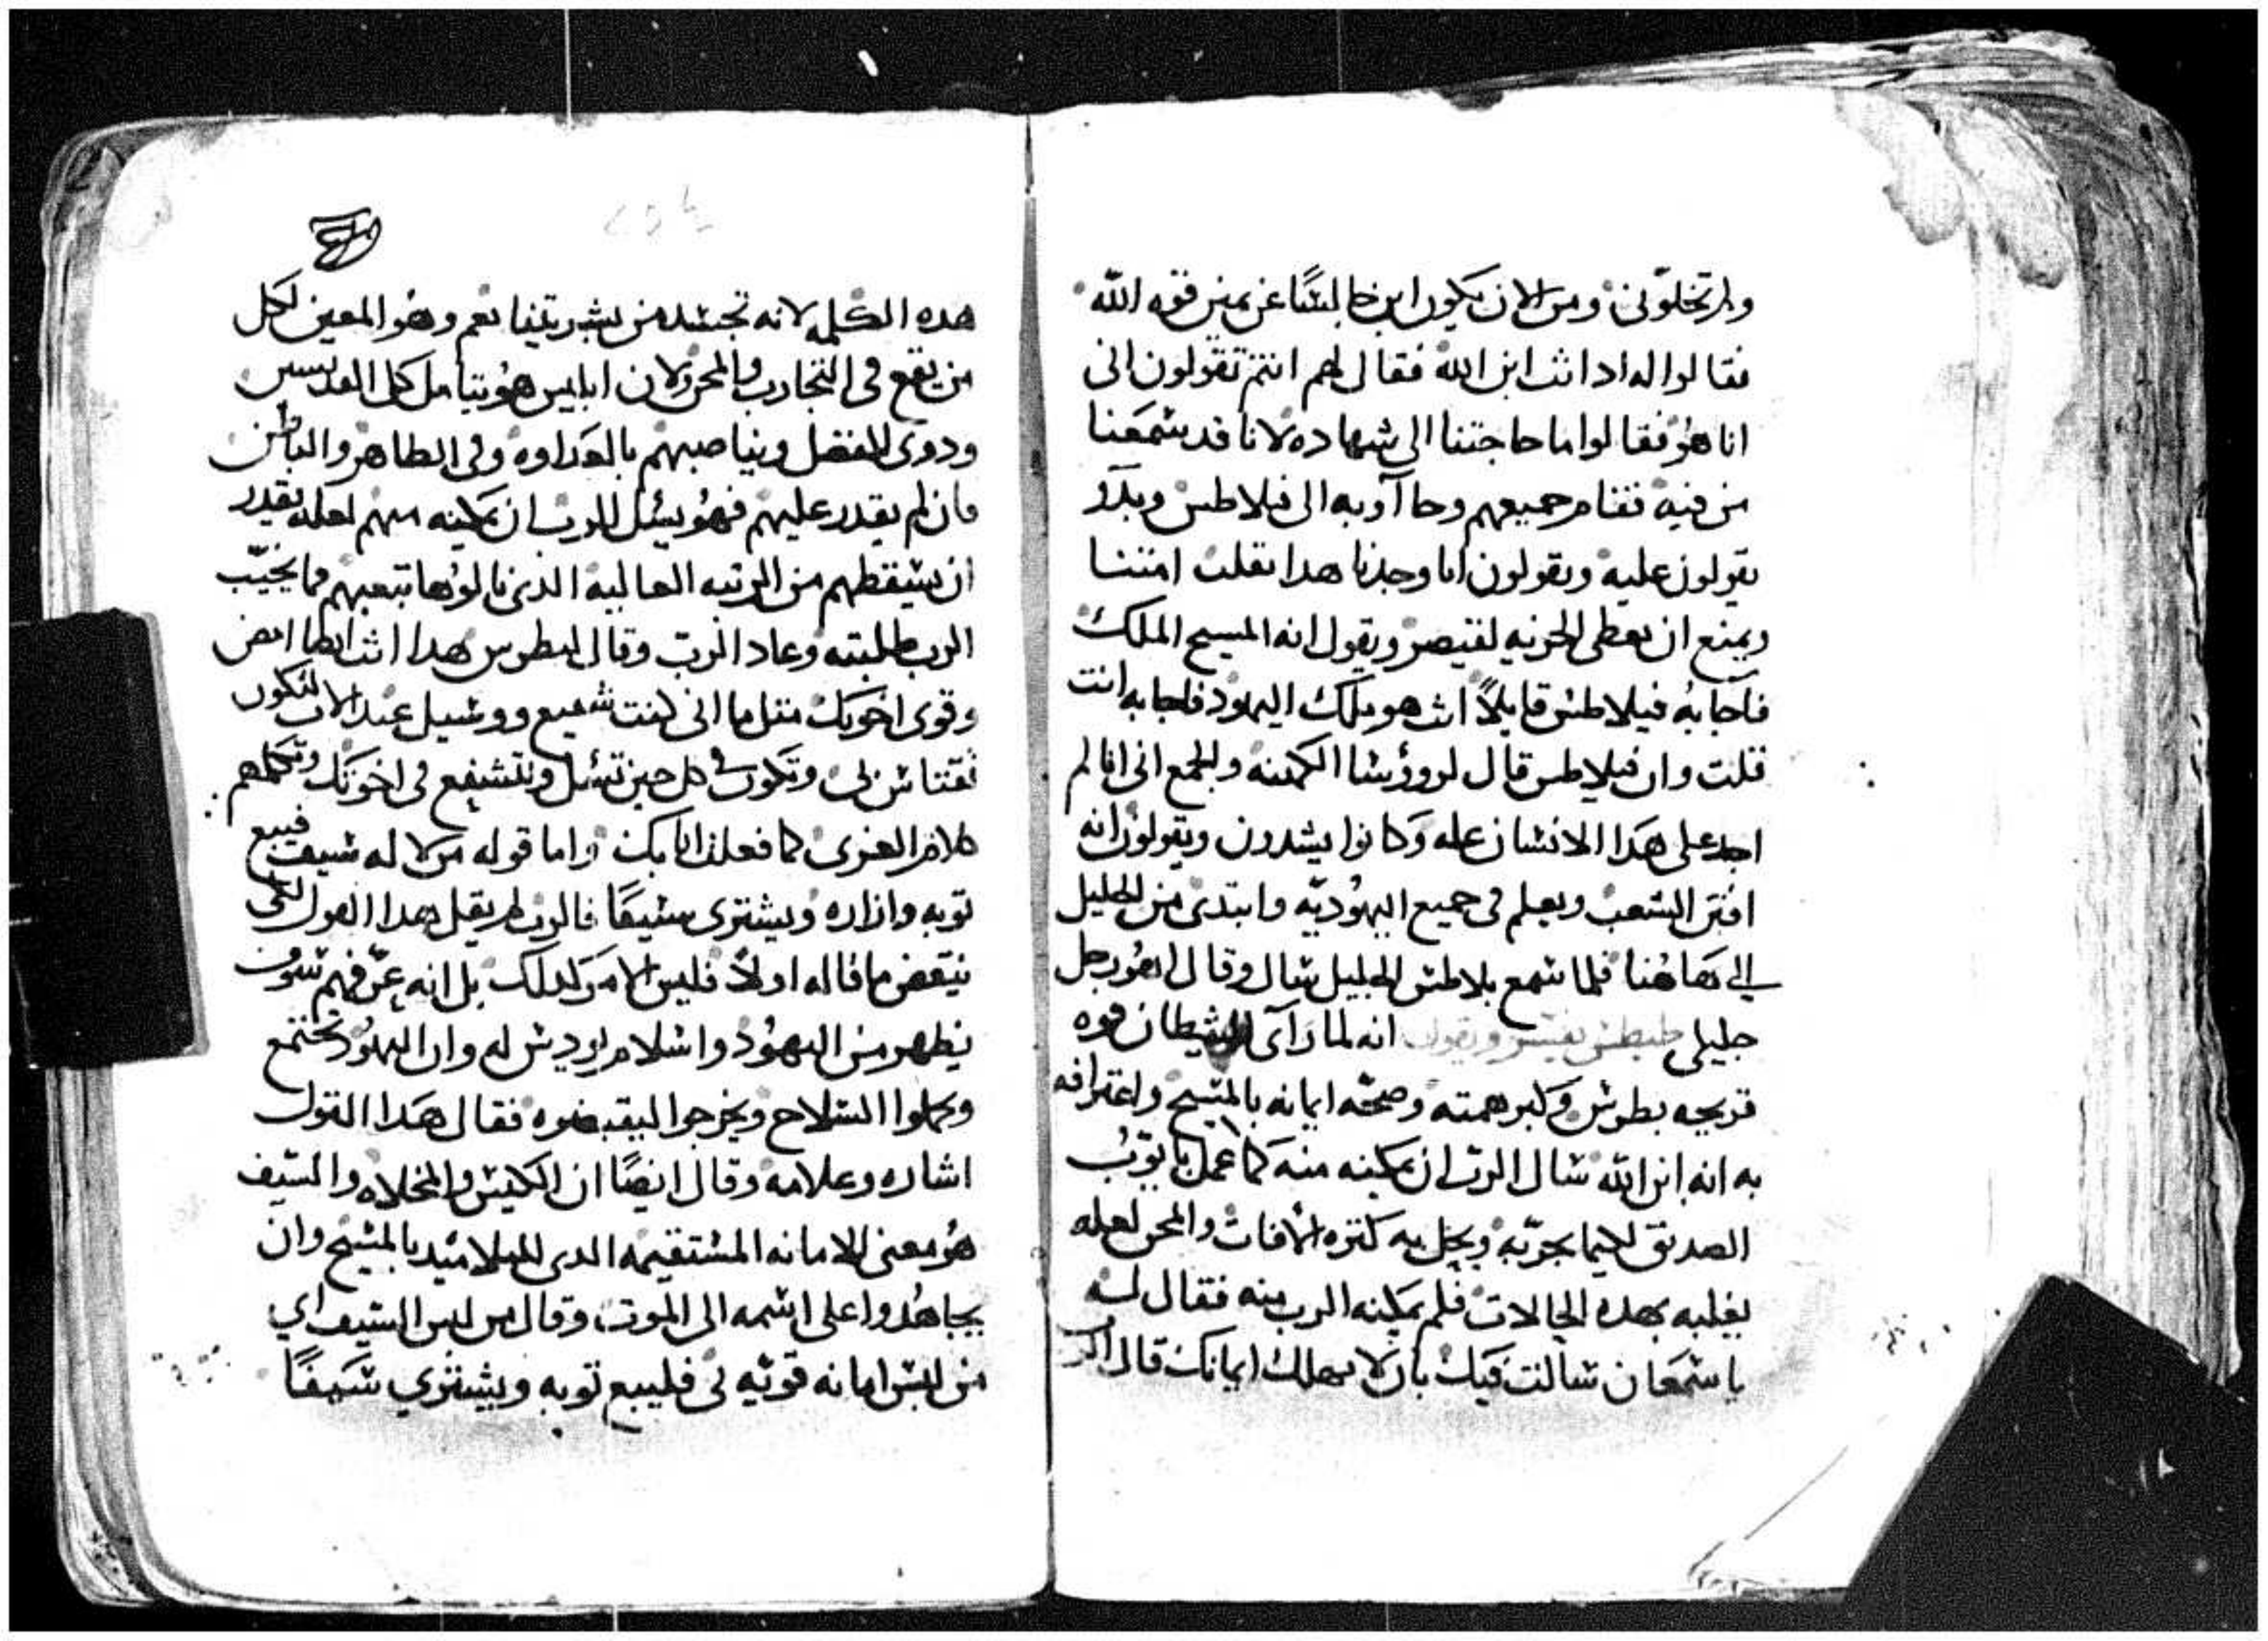 ولم تخلوني ومن الان يكون ابن جالسًا عن يمين قوه الله
فقالوا له اد انت ابن الله فقال لهم انتم تقولون انى
انا هو فقالوا ما حاجتنا الى شهاده لانا قد شمعنا
من فيه فقام جميعهم وجاآو به الى فيلاطس وبدَو
يقولون عليه ويقولون انا وجدنا هدا يقلب امتنا
ويمنع ان نعطى الجزيه لقيصر ويقول انه المسيح الملك
فاجابهُ فيلاطس قايلاً انت هو ملك اليهود فاجابه انت
قلت وان فيلاطس قال لروؤشا الكهنه والجمع انى انا لم
اجد على هدا الانشان عله وكانوا يشدون ويقولون انه
افتن الشعب ويعلم فى جميع اليهوديه وابتدى من الجليل
الى هاهُنا فلما شمع بلاطس الجليل شال وقال اهو رجل
جليلي انه لما رآى الشيطان قوه
قريحه بطرش وكبر همته وصحّه ايمانه بالمشيح واعترافه
به انه ابن الله شال الرب ان يمكنه منه كما عمل بايوبُ
الصديق لكيما يجرّبه ويجل به كتره الافات والمحن لعله
يغلبه بهده الحالات فلم يمكنه الرب منه فقال له
ياشمعان شالت فيك بان لا يهلك ايمانك قال
هده الكلمه لانه تجشد من بشريتنا نعم وهو المعين لكل
من يقع فى التجارب والمحن لان ابليس هُو يتامل كل القديسين
ودوى الفضل ويناصبهم بالعداوه وفى الظاهر والباطن
فان لم يقدر عليهم فهُو يسئل الرب ان يمكنه منهم لعله يقدر
ان يشقطهم من الرتبه العاليه الذى نالوُها بتعبهم فما يجيّب
الرب طلبته وعاد الرب وقال لبطرس هدا انت ايضا امض
وقوى اخوتك متل ما انى كنت شفيع ووشيل عند الاب لتكون
تقتاس بى وتكون فى كل حين تسئل وتتشفع فى اخوتك وتكلمهم
كلام العزى كما فعلت انا بك واما قوله من لا له شيف فيبع
توبه وازاره ويشترى شيفًا فالرب لم يقل هدا القول لكى
ينقض ما قاله اولاً فليس الامر كدلك بل انه عرّفهم شوف
يظهر من اليهُود واشلام يودش له وان اليهُود تجتمع
وحملوا الشلاح ويخرجوا ليقبضوه فقال هدا القول
اشاره وعلامه وقال ايضًا ان الكيش والمخلاه والشيف
هُو معنى الامانه المشتقيمه الدى للتلاميد بالمشيح وان
يجاهدوا على اشمه الى الموت وقال من ليس الشيف اي
من ليش امانه قويّه لى فليبيع توبه ويشتري شيفًا